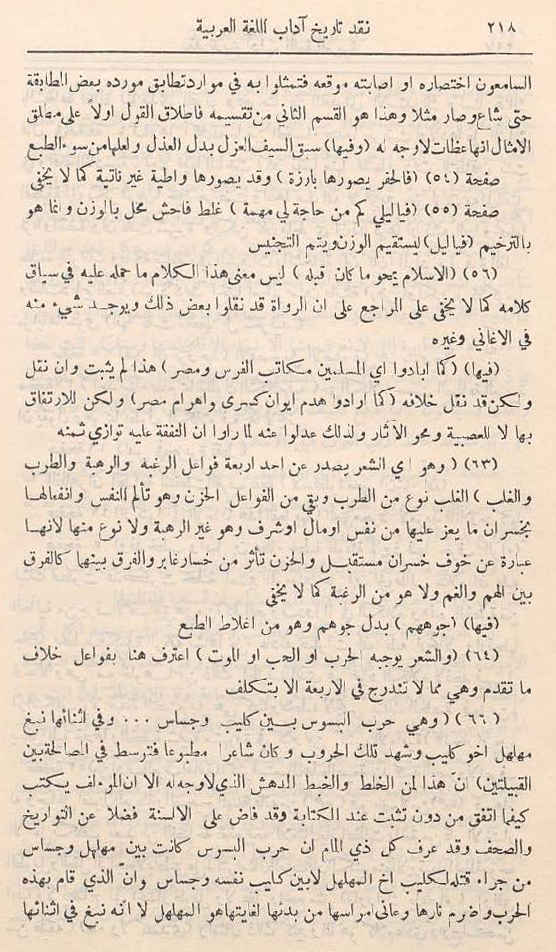 ٢١٨ نقد تاريخ آداب اللغة العربية
السامعون اختصاره او اصابته موقعه فتمثلوا به في موارد تطابق مورده بعض الطابقة
حتى شاع وصار مثلا وهذا هو القسم الثاني من تقسيمه فاطلاق القول اولاً على مطلق
الامثال انها عظات لا وجه له (وفيها) سبق السيف العزل بدل العذل ولعلها من سوء الطبع
صفحة (٥٤) (فالحفر يصورها بارزة) وقد يصورها واطية غير ناتية كما لا يخفى
صفحة (٥٥) (فياليلي كم من حاجة لي مهمة) غلط فاحش مخل بالوزن وانما هو
بالترخيم (فياليل) ليستقيم الوزن ويتم التجنيس
(٥٦) (الاسلام يمحو ما كان قبله) ليس معنى هذا الكلام ما حمله عليه في سياق
كلامه كما لا يخفى على المراجع على ان الرواة قد نقلوا بعض ذلك ويوجد شيء منه
في الاغاني وغيره
(فيها) (كما ابادوا اي المسلمين مكاتب الفرس ومصر) هذا لم يثبت وان نقل
ولكن قد نقل خلافه (كما ارادوا هدم ايوان كسرى واهرام مصر) ولكن للارتفاق
بها لا للعصبية ومحو الآثار ولذلك عدلوا عنه لما راوا ان النفقة عليه توازي ثمنه
(٦٣) (وهو اي الشعر يصدر عن احد اربعة فواعل الرغبه والرهبة والطرب
والغلب) الغلب نوع من الطرب وبقي من الفواعل الحزن وهو تألم النفس وانفعالها
بخسران ما يعز عليها من نفس اومال اوشرف وهو غير الرهبة ولا نوع منها لانها
عبارة عن خوف خسران مستقبل والحزن تأثر من خسار غابر والفرق بينهما كالفرق
بين الهم والغم ولا هو من الرغبة كما لا يخفى
(فيها) (جوههم) بدل جوهم وهو من اغلاط الطبع
(٦٤) (والشعر يوجبه الحرب او الحب او الموت) اعترف هنا بفواعل خلاف
ما تقدم وهي مما لا تندرج في الاربعة الا بتكلف
(٦٦) (وهي حرب البسوس بين كليب وجساس ... وفي اثنائها نبغ
مهلهل اخو كليب وشهد تلك الحروب وكان شاعرا مطبوعا فترسط في المصالحة بين
القبيلتين) انّ هذا لمن الخلط والخبط المدهش الذي لا وجه له الا ان المؤلف يكتب
كيفما اتفق من دون تثبت عند الكتابة وقد فاض على الالسنة فضلا عن التواريخ
والصحف وقد عرف كل ذي المام ان حرب البسوس كانت بين مهلهل وجساس
من جراء قتله لكليب اخ المهلهل لابين كليب نفسه وجساس وانّ الذي قام بهذه
الحرب واضرم نارها وعانى امراسها من بدئها لغايتها هو المهلهل لا انه نبغ في اثنائها